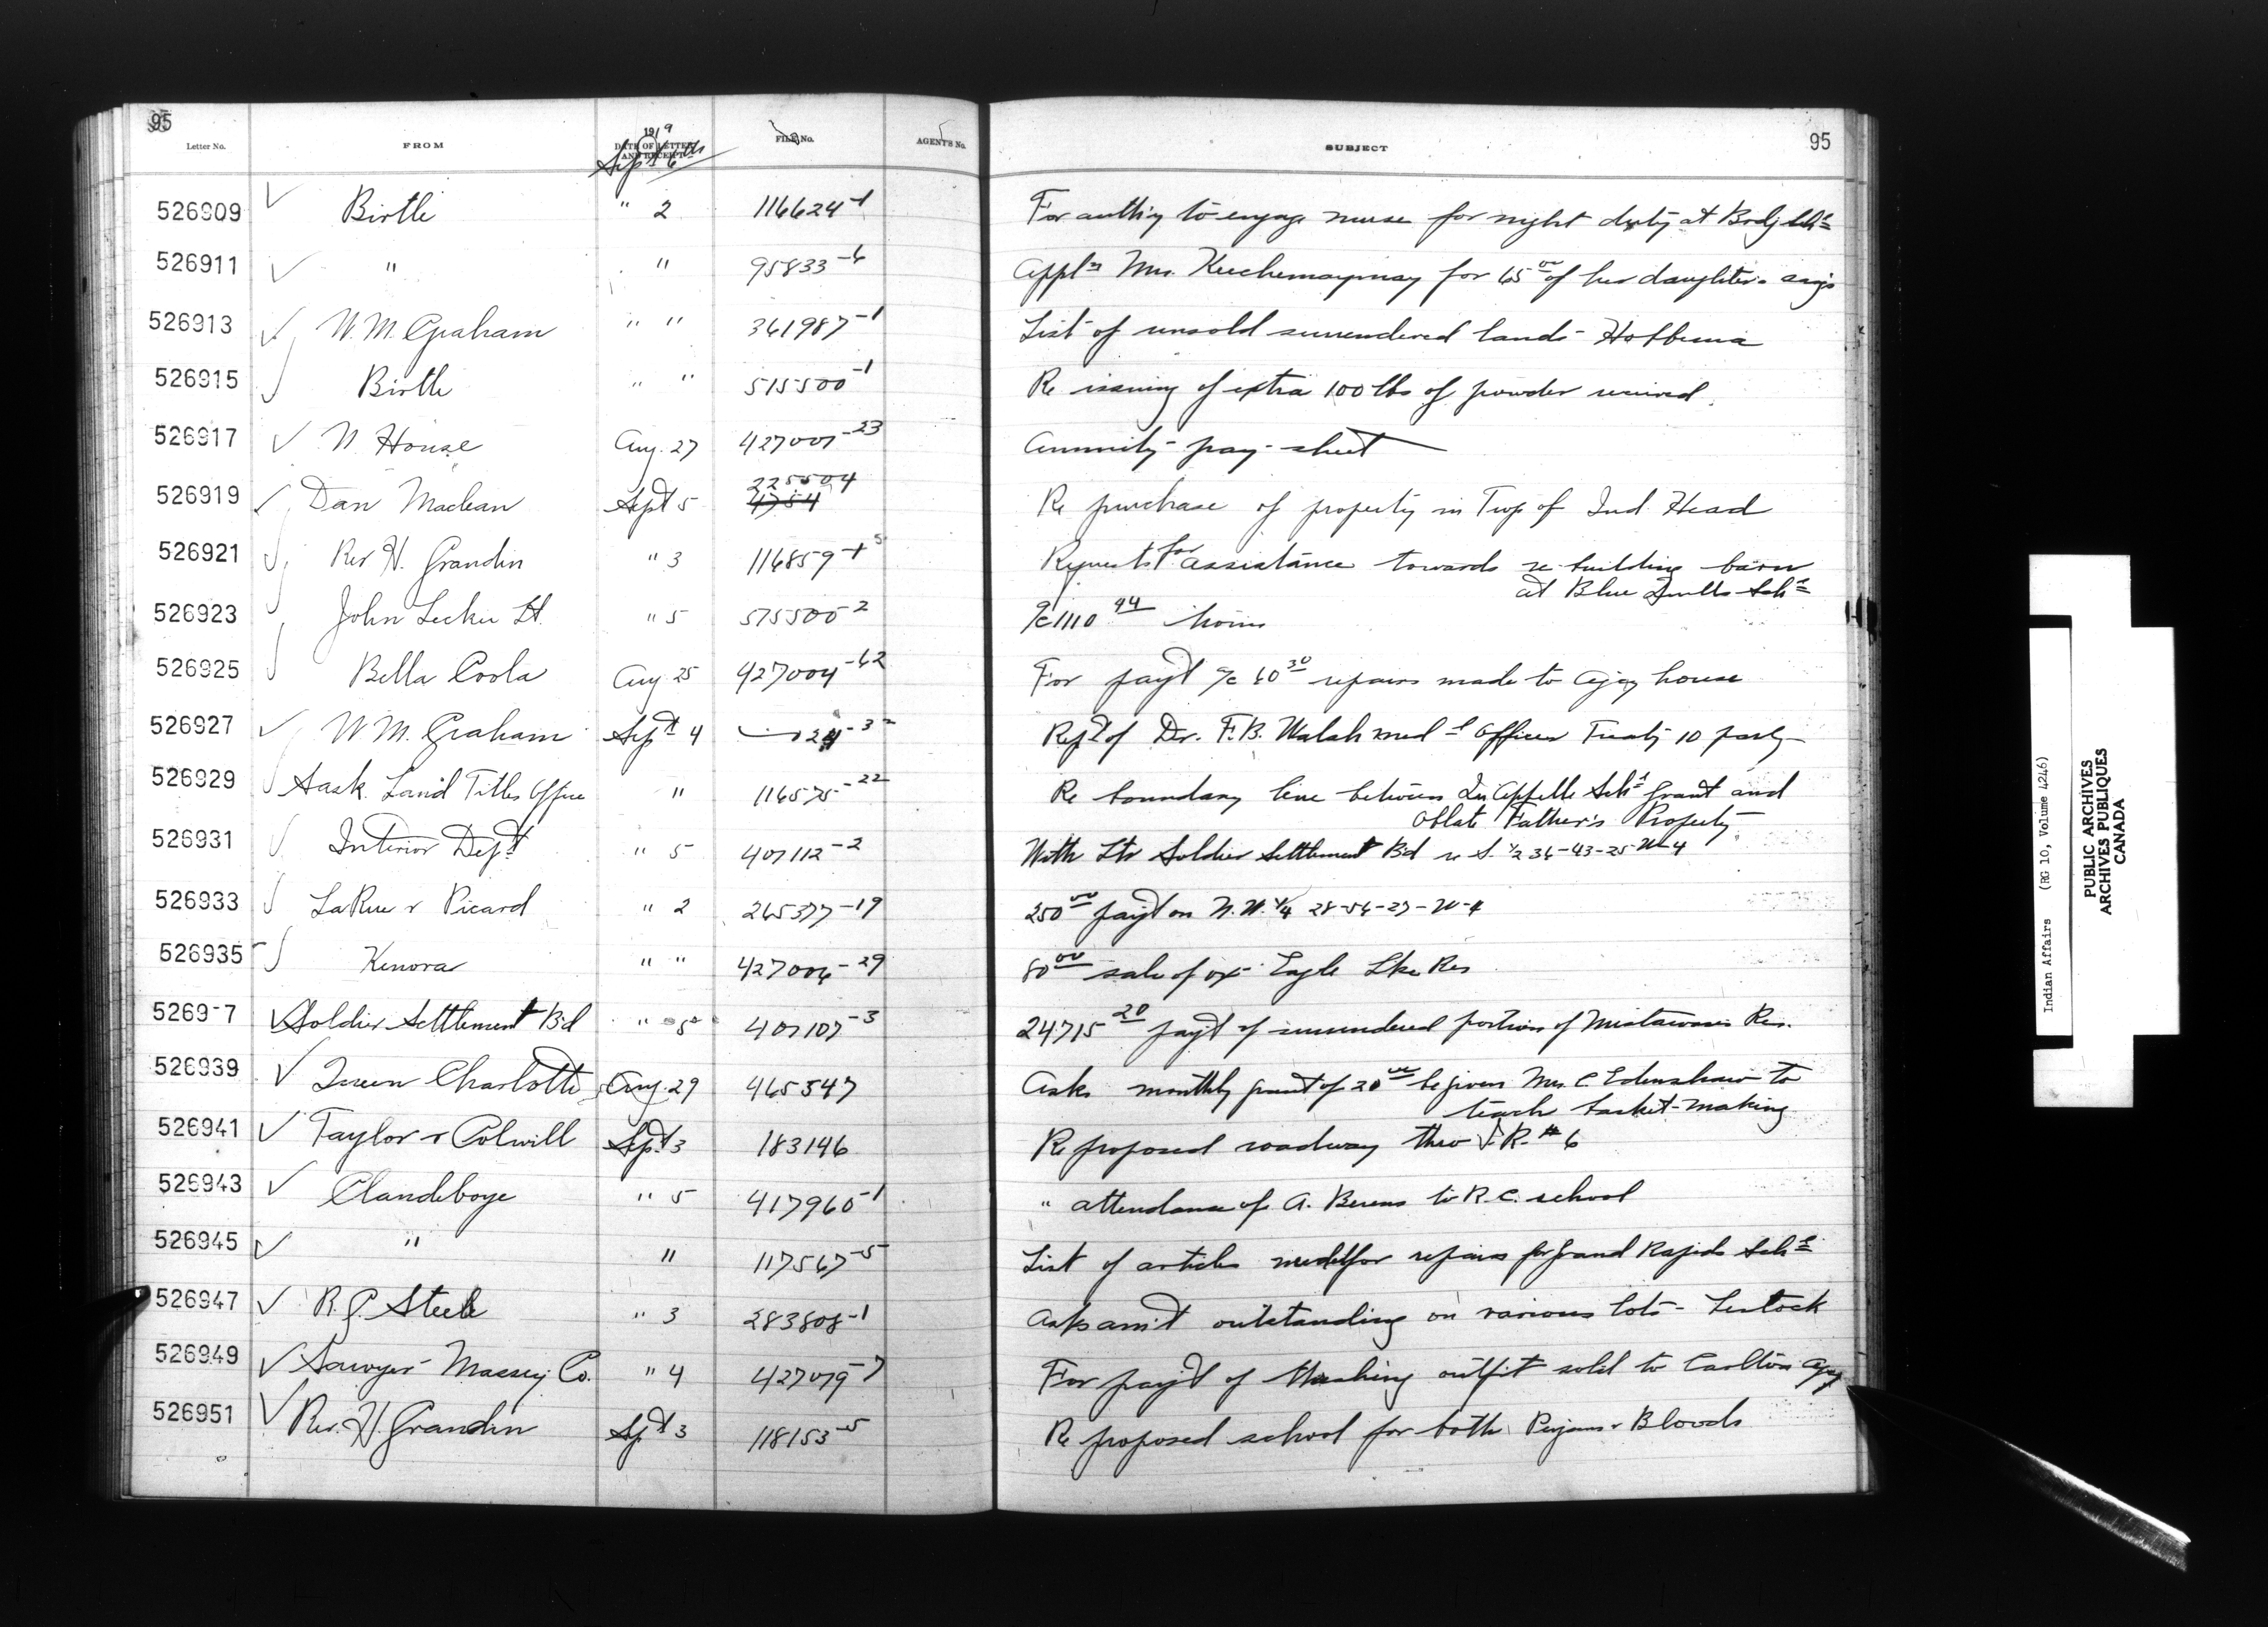 95
Letter No. FROM 1919 DATE OF LETTER AND RECEIPT FILE No. AGENT'S No. SUBJECT 95
Sept 6th
526909 Birtle " 2 116624-1 For auth'y to engage nurse for night duty at Brdg Sch
526911 " " 95833-6 Appl'n Mrs. for 65 00 of her daughter's
526913 W. M. Graham " " 361987-1 List of unsold surrendered lands - Hobbema
526915 Birtle " " 515500-1 Re issuing of extra 100 lbs of powder received.
526917 N. House Aug. 27 427001-23 Annuity pay-sheet
526919 Dan Maclean Sept 5 225504 4754 Re purchase of property in Twp of Ind. Head
526921 Rev H. Grandin " 3 116859-1 5 Requests for assistance towards re-building barn
at Blue Quills Sch l
526923 John Leckie Lt. " 5 575500-2 a/c 1110 94
526925 Bella Coola Aug 25 427004-62 For pay't a/c 60 30 repairs made to agcy house
526927 W M. Graham Sept 4 24-3 Rep't of Dr. F. B. Walsh med l Officer Treaty 10 party
526929 Sask. Land Titles Office " 116575-22 Re boundary line between Qu'Appelle Sch l grant and
Oblate Father's Property
526931 Interior Dep't " 5 407112-2 With ltr Soldier Settlement Bd re S. 1/2 36-43-25-W-4
526933 LaRue & Picard " 2 265377-19 250 00 pay't on N. W. 1/4 28-54-27-W-4
526935 Kenora " " 427006-29 80 00 sale of ox - Eagle Lke Res
5269-7 Soldier Settlement Bd " 5 407107-3 24715 20 pay't of surrendered portion of Mistawasis Res.
526939 Queen Charlotte Aug. 29 465347 Asks monthly grant of 20 00 be given Mrs. C Edenshaw to
teach basket-making
526941 Taylor & Colwill Sept 3 183146 Re proposed roadway thro I. R. # 6
526943 Clandeboye " 5 417960-1 " attendance of A. Berens to R. C. school
526945 " " 117567-5 List of articles needed for repairs for Grand Rapids Sch l
526947 R. P. Steele " 3 283808-1 Asks am't outstanding on various lots - Lestock
526949 Sawyer-Massey Co. " 4 427079-7 For pay't of threshing outfit sold to Carlton Agcy
526951 Rev. H. Grandin Sept 3 118153-5 Re proposed school for both Peigans & Bloods
Indian Affairs (RG 10, Volume 4246)
PUBLIC ARCHIVES
ARCHIVES PUBLIQUES
CANADA